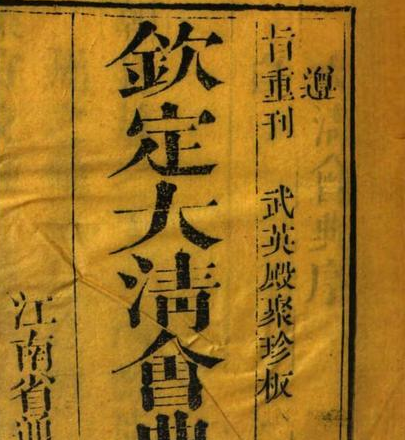 遵
旨重刊 武英殿聚珍板
欽定大清會典
江南省